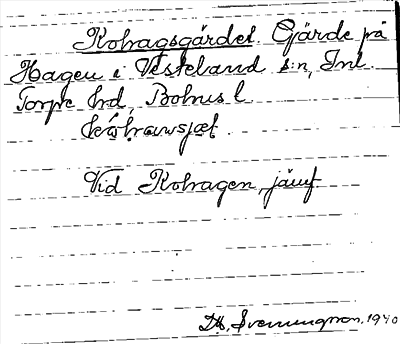 Kohagsgärdet. Gjärde på
Hagen i Västerland s:n, Inl.
Torpe hrd, Bohusl.
Vid Kohagen, jämf.
D. A. Svenningsson, 1940